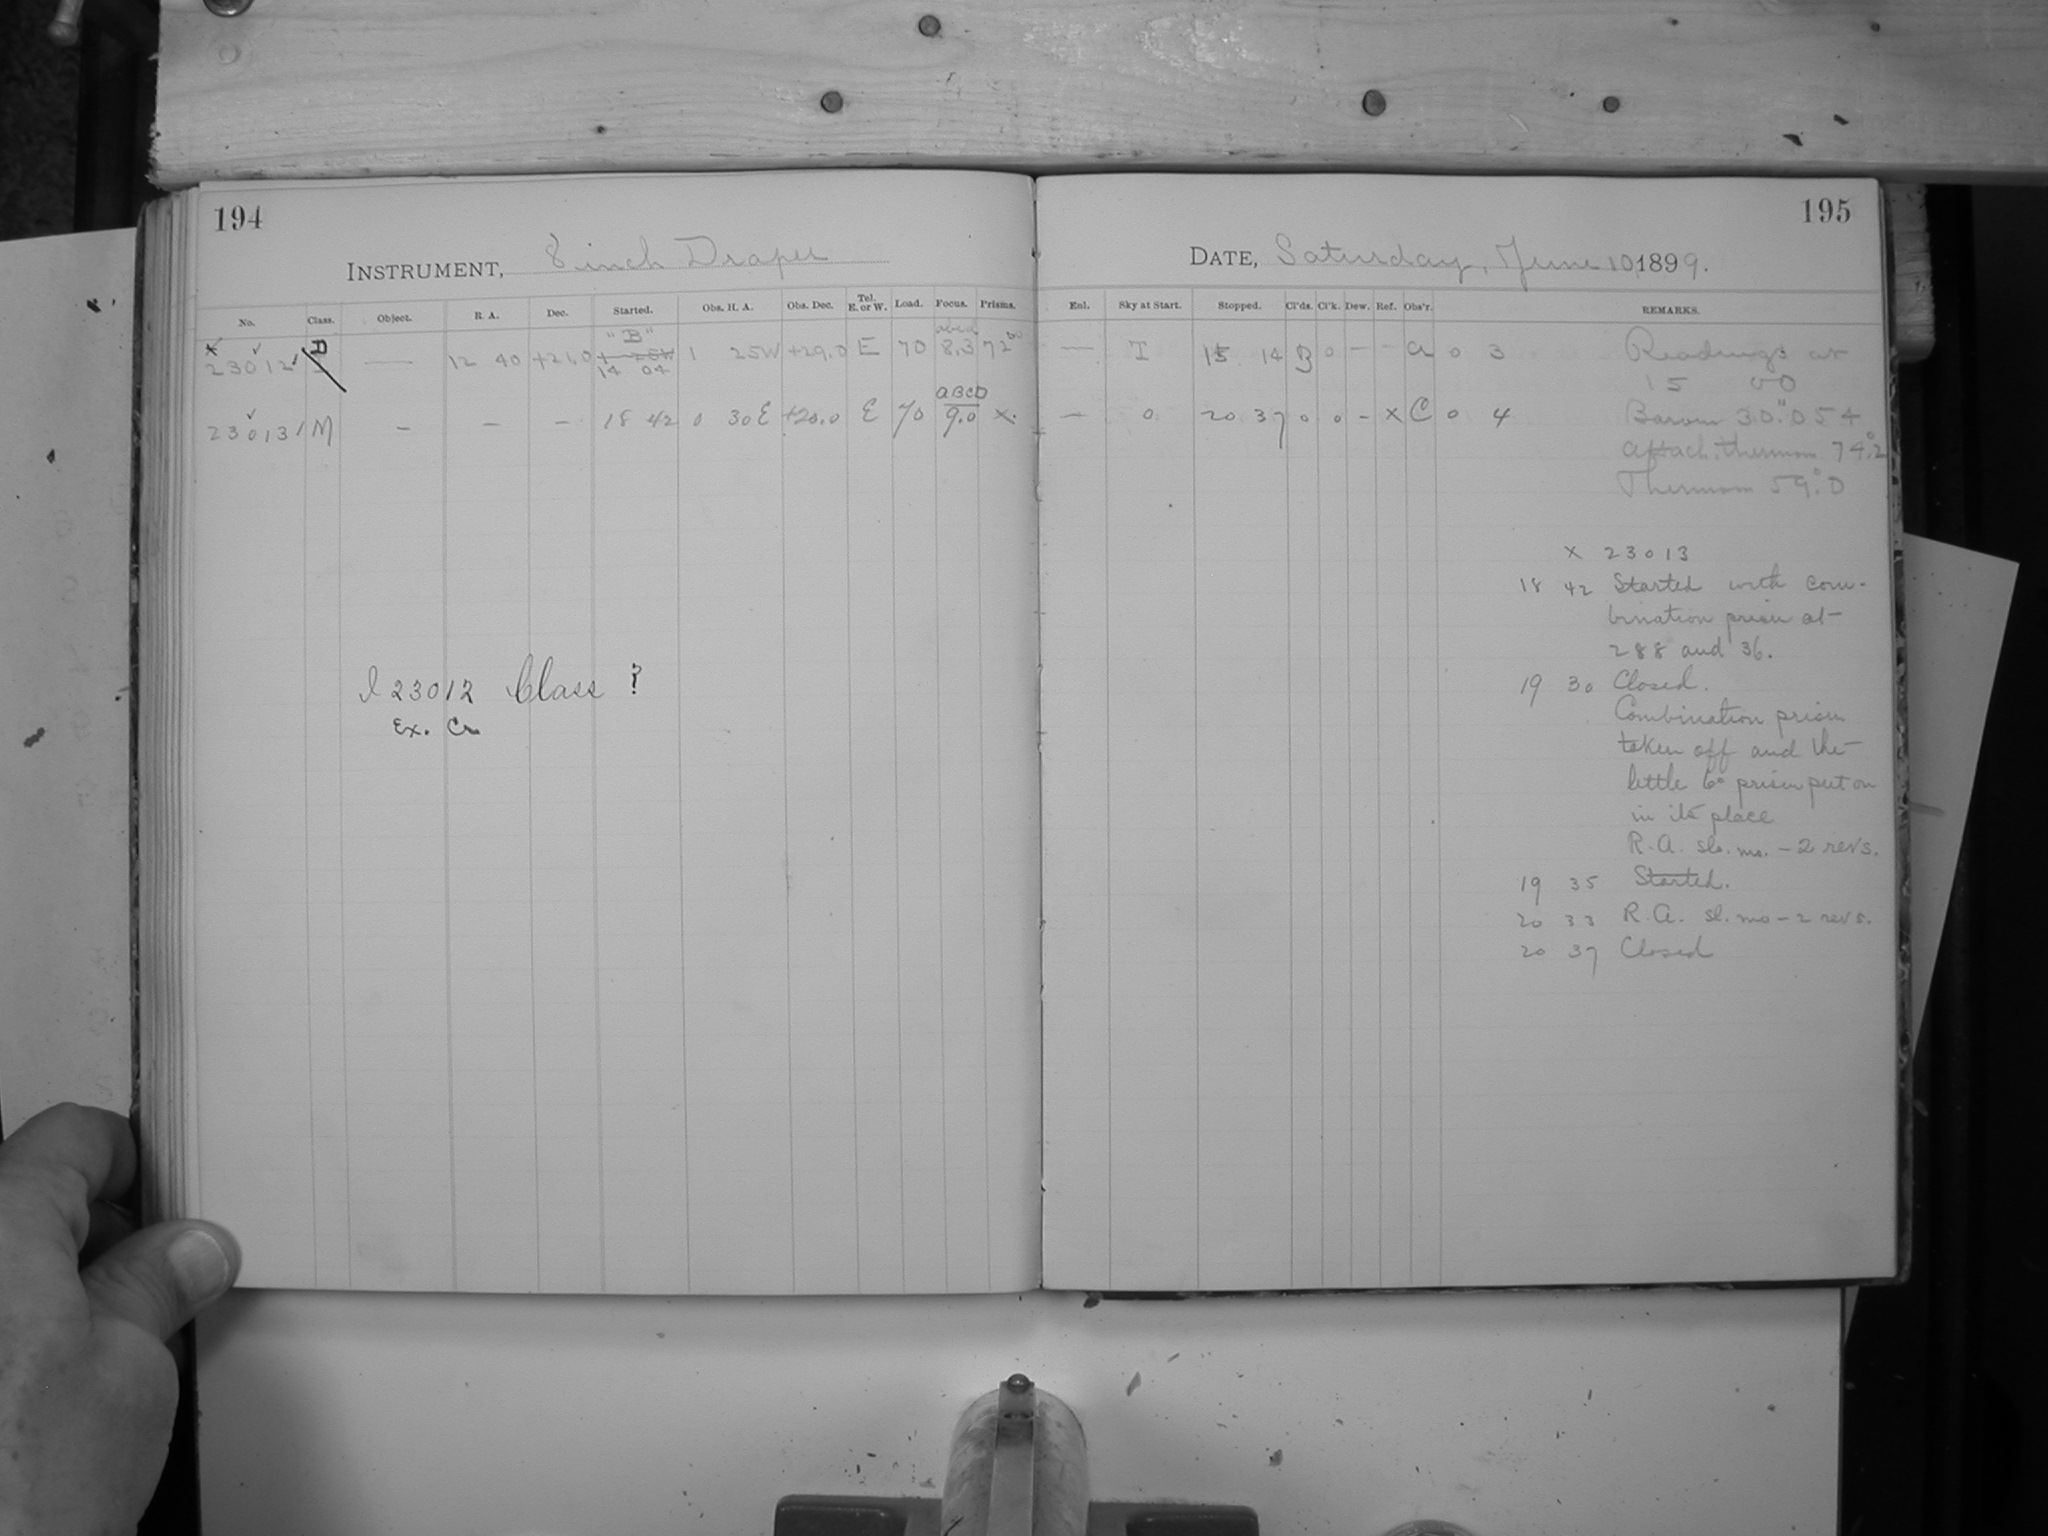 194
INSTRUMENT, 8 inch Draper
No. Class. Object. R. A. Dec. Started. Obs. H. A. Obs. Dec. Tel. E. or W. Load. Focus. Prisms.
"B"
23012 — 12 40 +21.0 14 04 1 25W +29.0 E 70 8.3 72
ABCD
23013 M - - - 18 42 0 30E +20.0 E 70 9.0 x.
I 23012 Class ?
Ex. Cr
195
DATE, Saturday, June 10, 1899.
Enl. Sky at Start. Stopped. Cl'ds. Cl'k. Dew. Ref. Obs'r. REMARKS.
— I 15 14 B 0 - - a 0 3 Readings at
15 00
— 0 20 37 0 0 - x C 0 4 Barom 30".054
attach. thermom 74°.2
Thermom 59°.0
x 23013
18 42 Started with com-
bination prism at
288 and 36.
19 30 Closed.
Combination prism
taken off and the
little 6° prism put on
in its place
R.A. slo. mo. - 2 revs.
19 35 Started.
20 33 R.A. sl. mo - 2 revs.
20 37 Closed